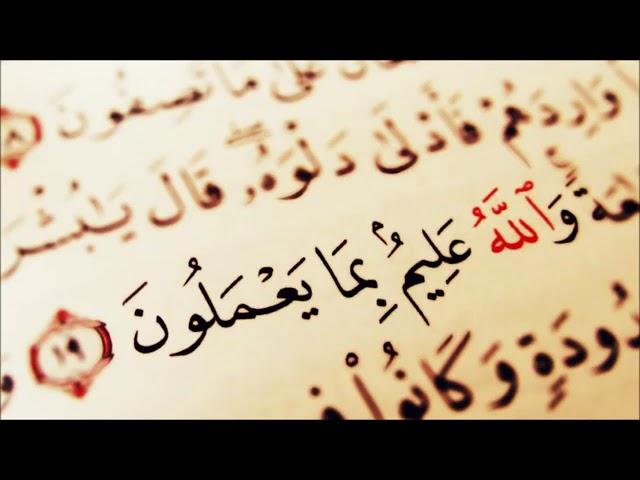 عَلَىٰ مَا تَصِفُونَ ١٨
وَارِدَهُمْ فَأَدْلَىٰ دَلْوَهُۥ ۖ قَالَ يَٰبُشْرَ
عَةً وَٱللَّهُ عَلِيمٌۢ بِمَا يَعْمَلُونَ ١٩
دُودَةٍ وَكَانُوا۟ فِ